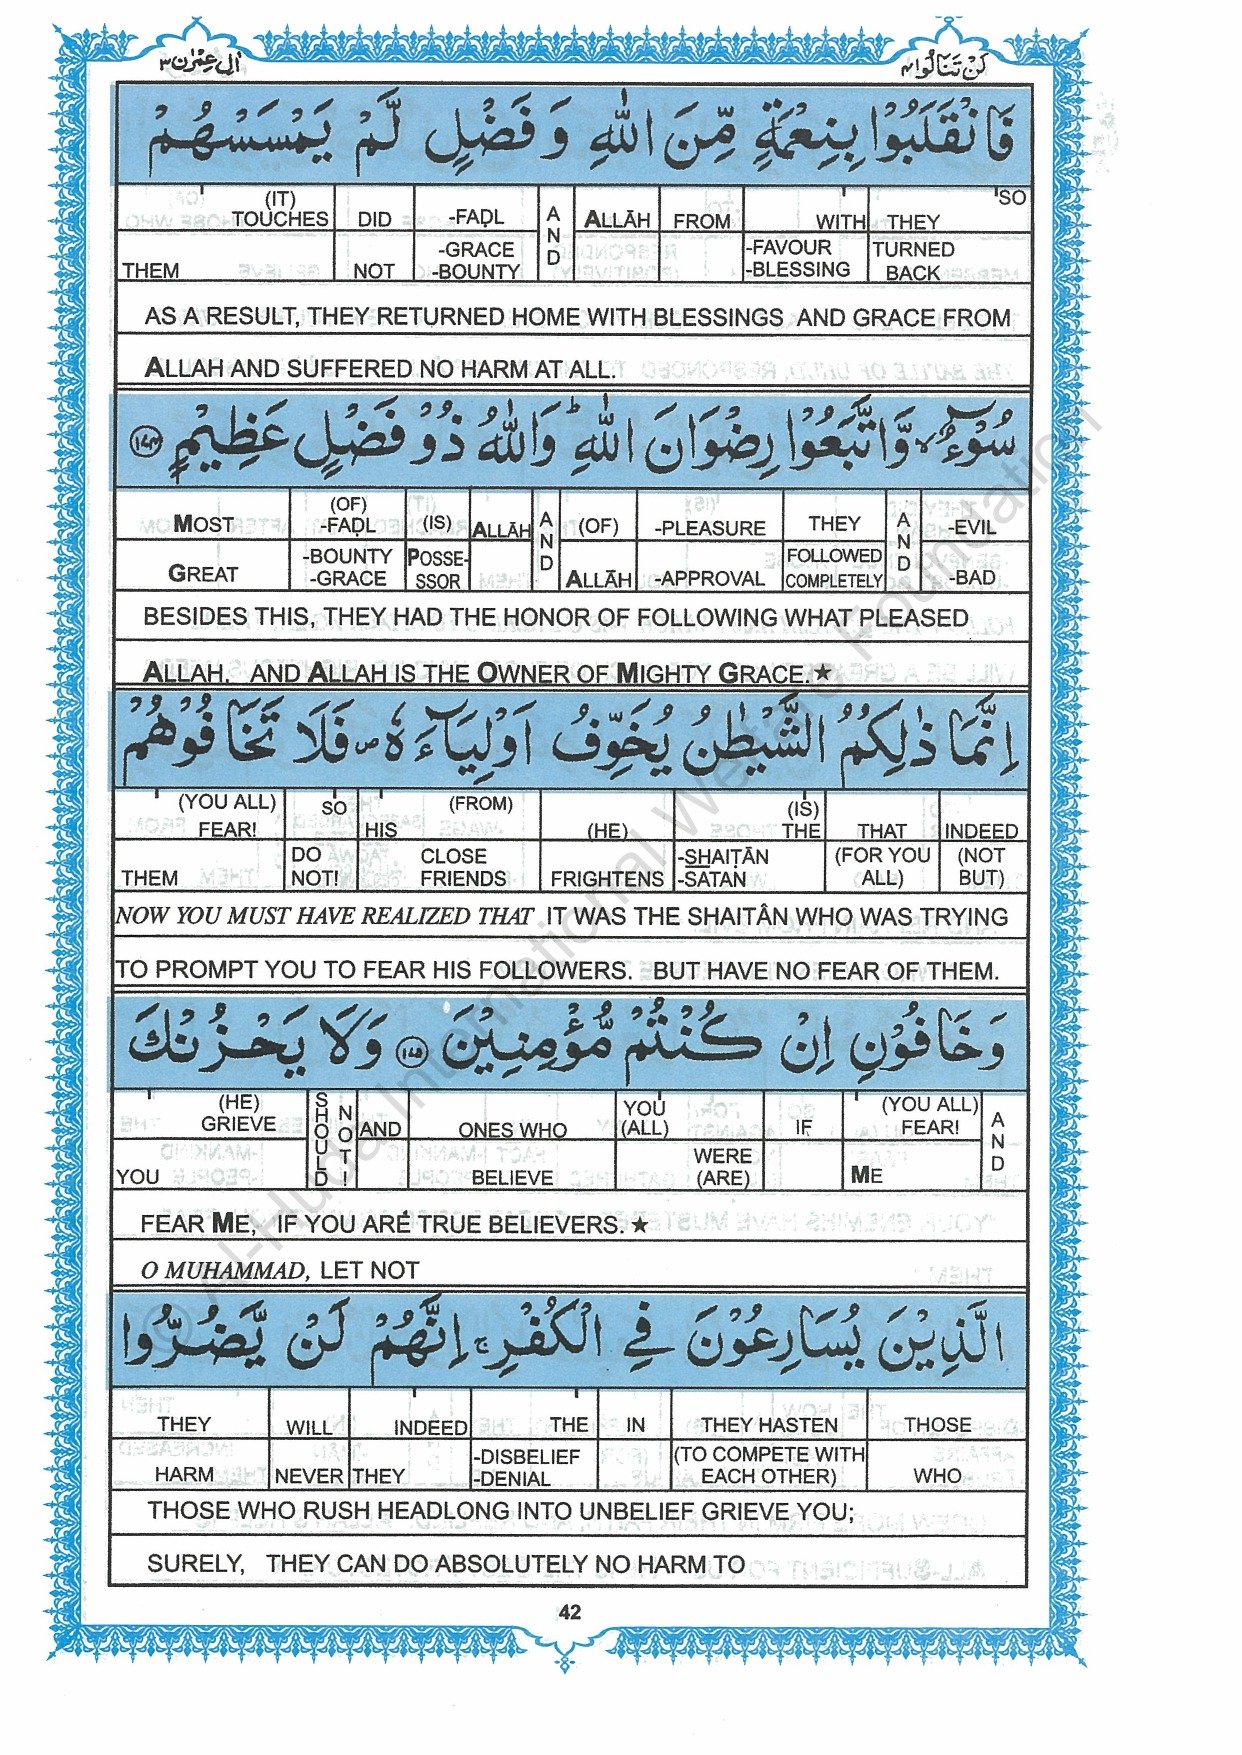 اٰل عِمْرٰن ٣ لَنْ تَنَالُوا ٤
فَانْقَلَبُوْا بِنِعْمَةٍ مِّنَ اللّٰهِ وَ فَضْلٍ لَّمْ يَمْسَسْهُمْ
(IT) TOUCHES DID -FAḌL AND ALLĀH FROM WITH THEY SO
THEM NOT -GRACE -BOUNTY -FAVOUR -BLESSING TURNED BACK
AS A RESULT, THEY RETURNED HOME WITH BLESSINGS AND GRACE FROM
ALLAH AND SUFFERED NO HARM AT ALL.
سُوْٓءٌ ۙ وَّاتَّبَعُوْا رِضْوَانَ اللّٰهِ ؕ وَاللّٰهُ ذُوْ فَضْلٍ عَظِيْمٍ ۝١٧٤
MOST (OF) -FAḌL (IS) ALLĀH AND (OF) -PLEASURE THEY AND -EVIL
GREAT -BOUNTY -GRACE POSSE-SSOR ALLĀH -APPROVAL FOLLOWED COMPLETELY -BAD
BESIDES THIS, THEY HAD THE HONOR OF FOLLOWING WHAT PLEASED
ALLAH. AND ALLAH IS THE OWNER OF MIGHTY GRACE.★
اِنَّمَا ذٰلِكُمُ الشَّيْطٰنُ يُخَوِّفُ اَوْلِيَآءَهٗ ۪ فَلَا تَخَافُوْهُمْ
(YOU ALL) FEAR! SO HIS (FROM) (HE) (IS) THE THAT INDEED
THEM DO NOT! CLOSE FRIENDS FRIGHTENS -SHAITĀN -SATAN (FOR YOU ALL) (NOT BUT)
NOW YOU MUST HAVE REALIZED THAT IT WAS THE SHAITÂN WHO WAS TRYING
TO PROMPT YOU TO FEAR HIS FOLLOWERS. BUT HAVE NO FEAR OF THEM.
وَخَافُوْنِ اِنْ كُنْتُمْ مُّؤْمِنِيْنَ ۝١٧٥ وَلَا يَحْزُنْكَ
(HE) GRIEVE SHOULD NOT! AND ONES WHO YOU (ALL) IF (YOU ALL) FEAR! AND
YOU BELIEVE WERE (ARE) ME
FEAR ME, IF YOU ARE TRUE BELIEVERS.★
O MUHAMMAD, LET NOT
الَّذِيْنَ يُسَارِعُوْنَ فِي الْكُفْرِ ۚ اِنَّهُمْ لَنْ يَّضُرُّوا
THEY WILL INDEED THE IN THEY HASTEN THOSE
HARM NEVER THEY -DISBELIEF -DENIAL (TO COMPETE WITH EACH OTHER) WHO
THOSE WHO RUSH HEADLONG INTO UNBELIEF GRIEVE YOU;
SURELY, THEY CAN DO ABSOLUTELY NO HARM TO
42
© Al-Huda International Welfare Foundation